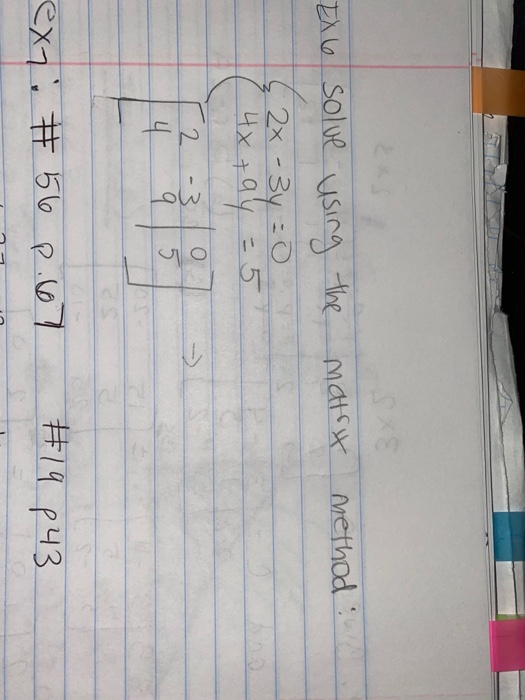 Ex6 Solve using the matrix method:
2x - 3y = 0
4x + 9y = 5
2 -3 | 0 →
4 9 | 5
ex7: # 56 p.67 #19 p43